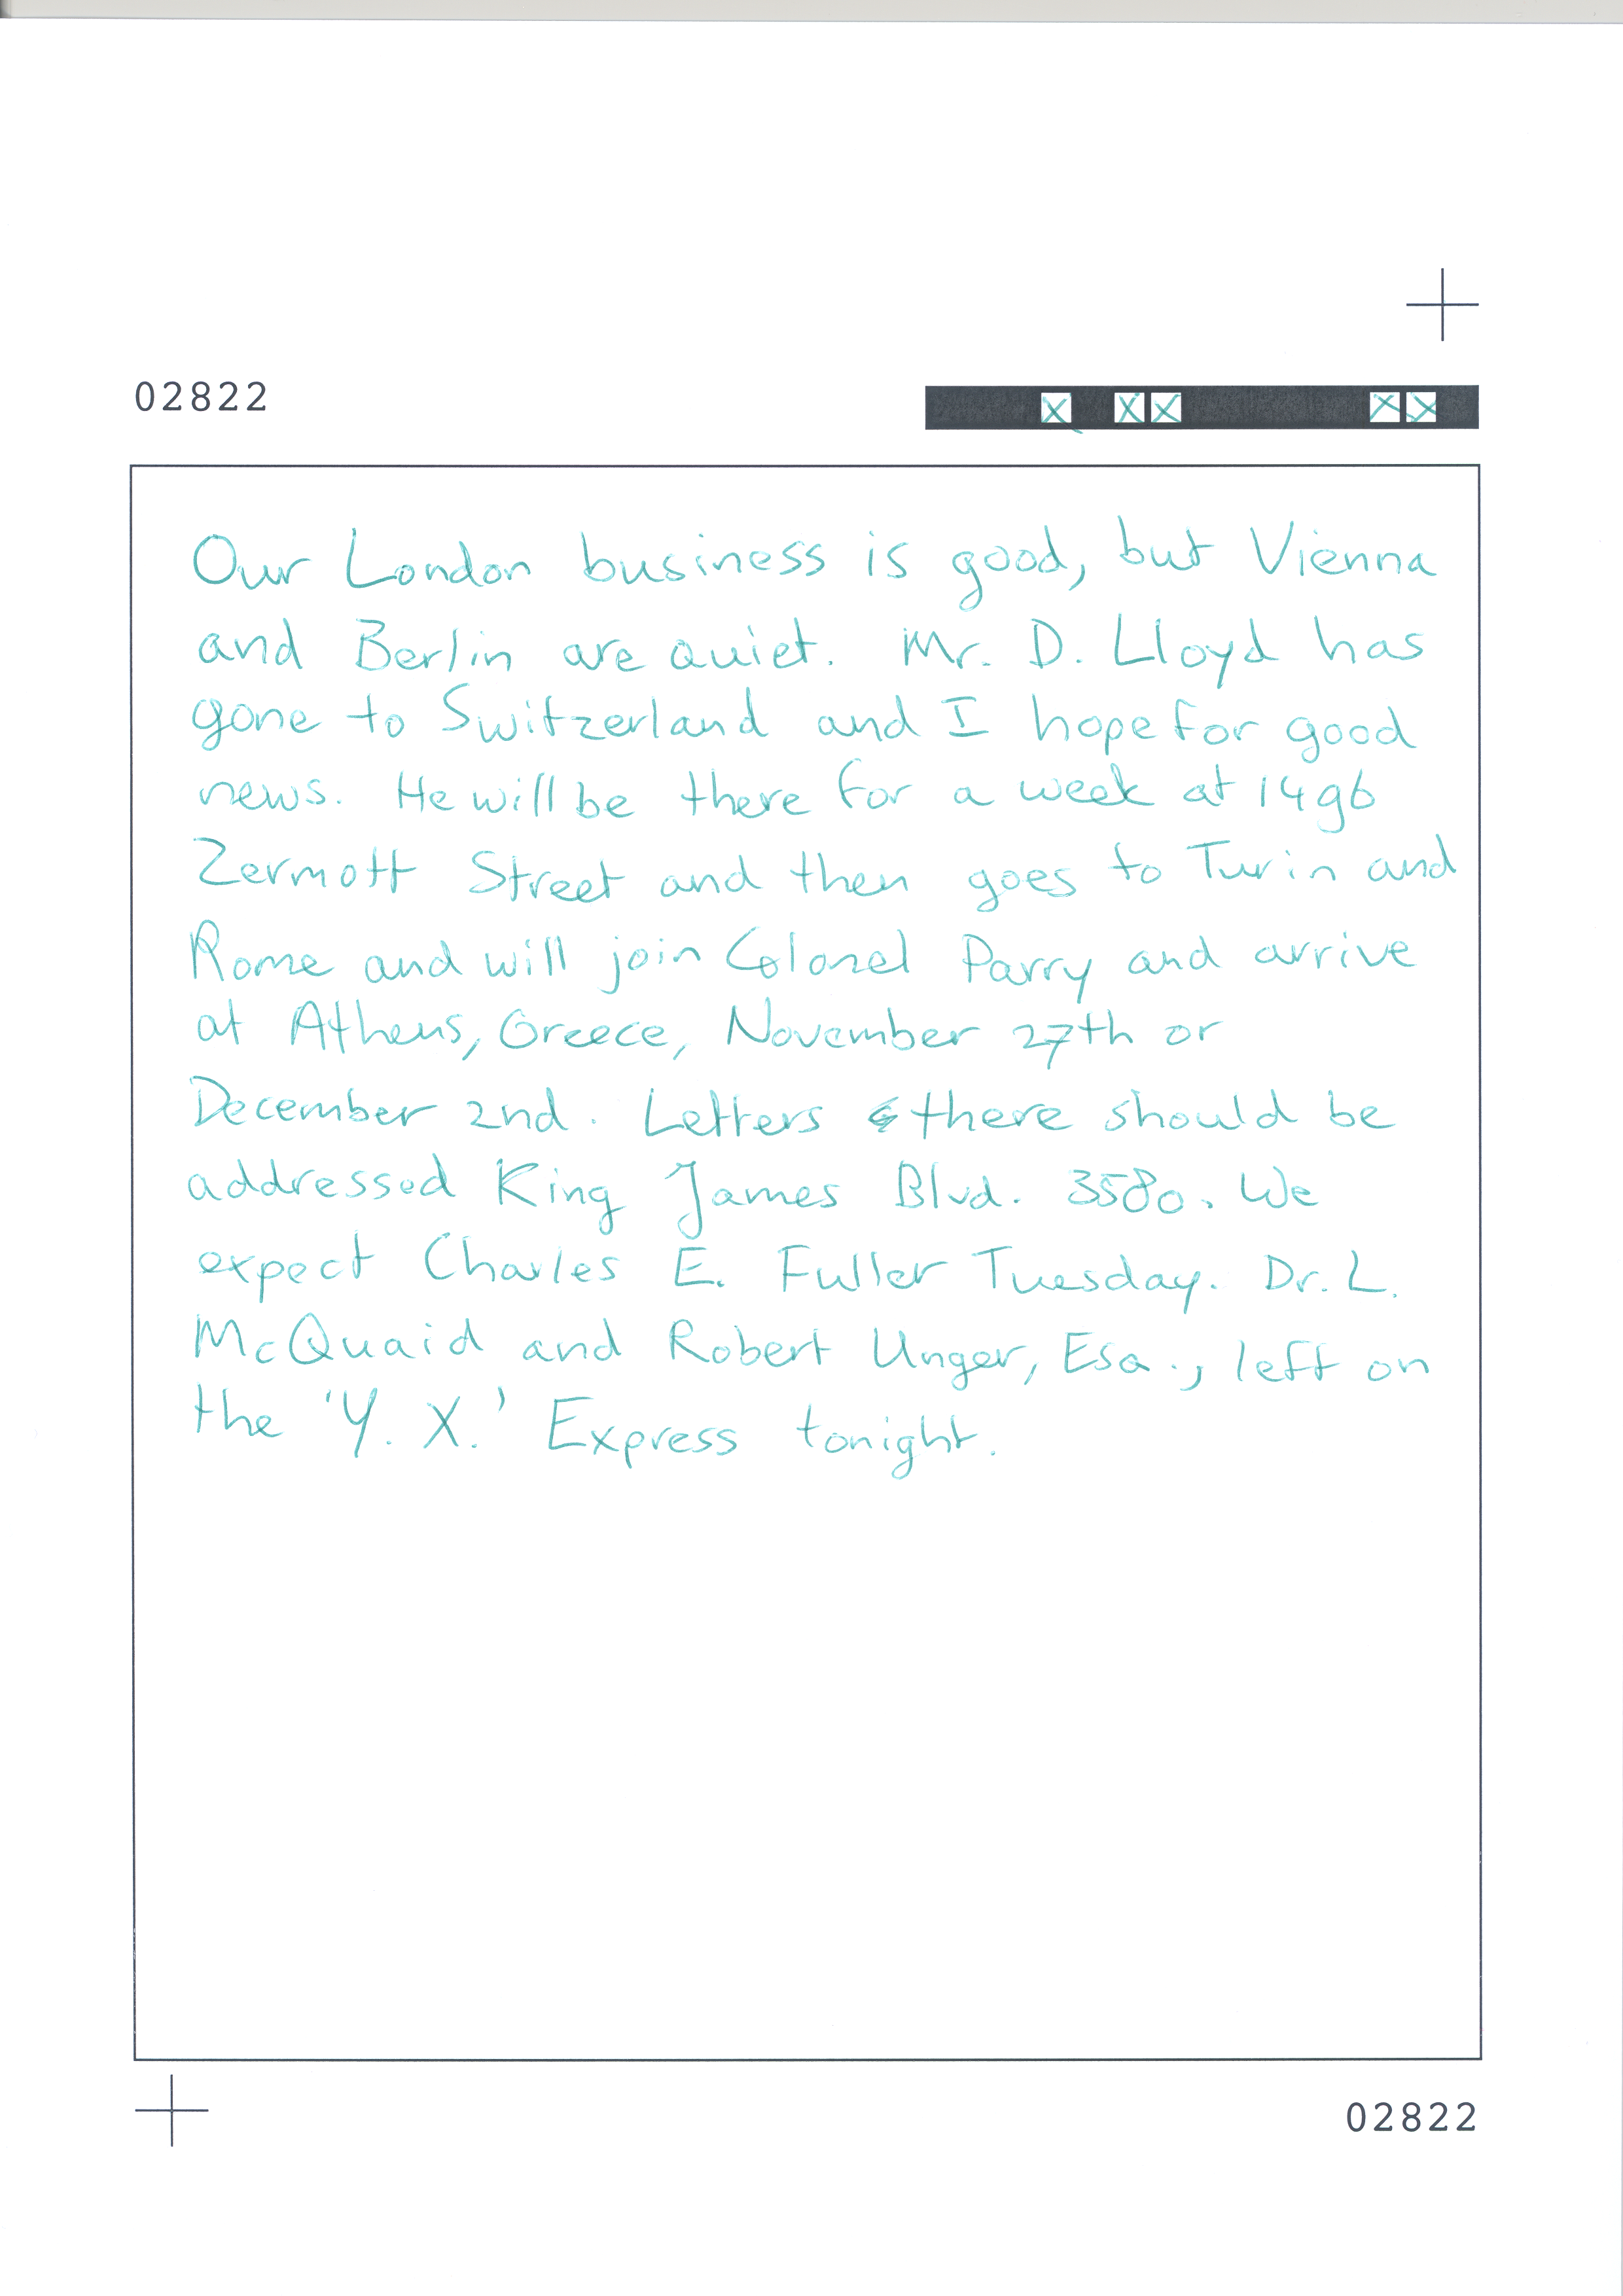 02822
Our London business is good, but Vienna
and Berlin are quiet. Mr. D. Lloyd has
gone to Switzerland and I hope for good
news. He will be there for a week at 1496
Zermott Street and then goes to Turin and
Rome and will join Colonel Parry and arrive
at Athens, Greece, November 27th or
December 2nd. Letters there should be
addressed King James Blvd. 3580. We
expect Charles E. Fuller Tuesday. Dr. L.
McQuaid and Robert Unger, Esq., left on
the 'Y. X.' Express tonight.
02822